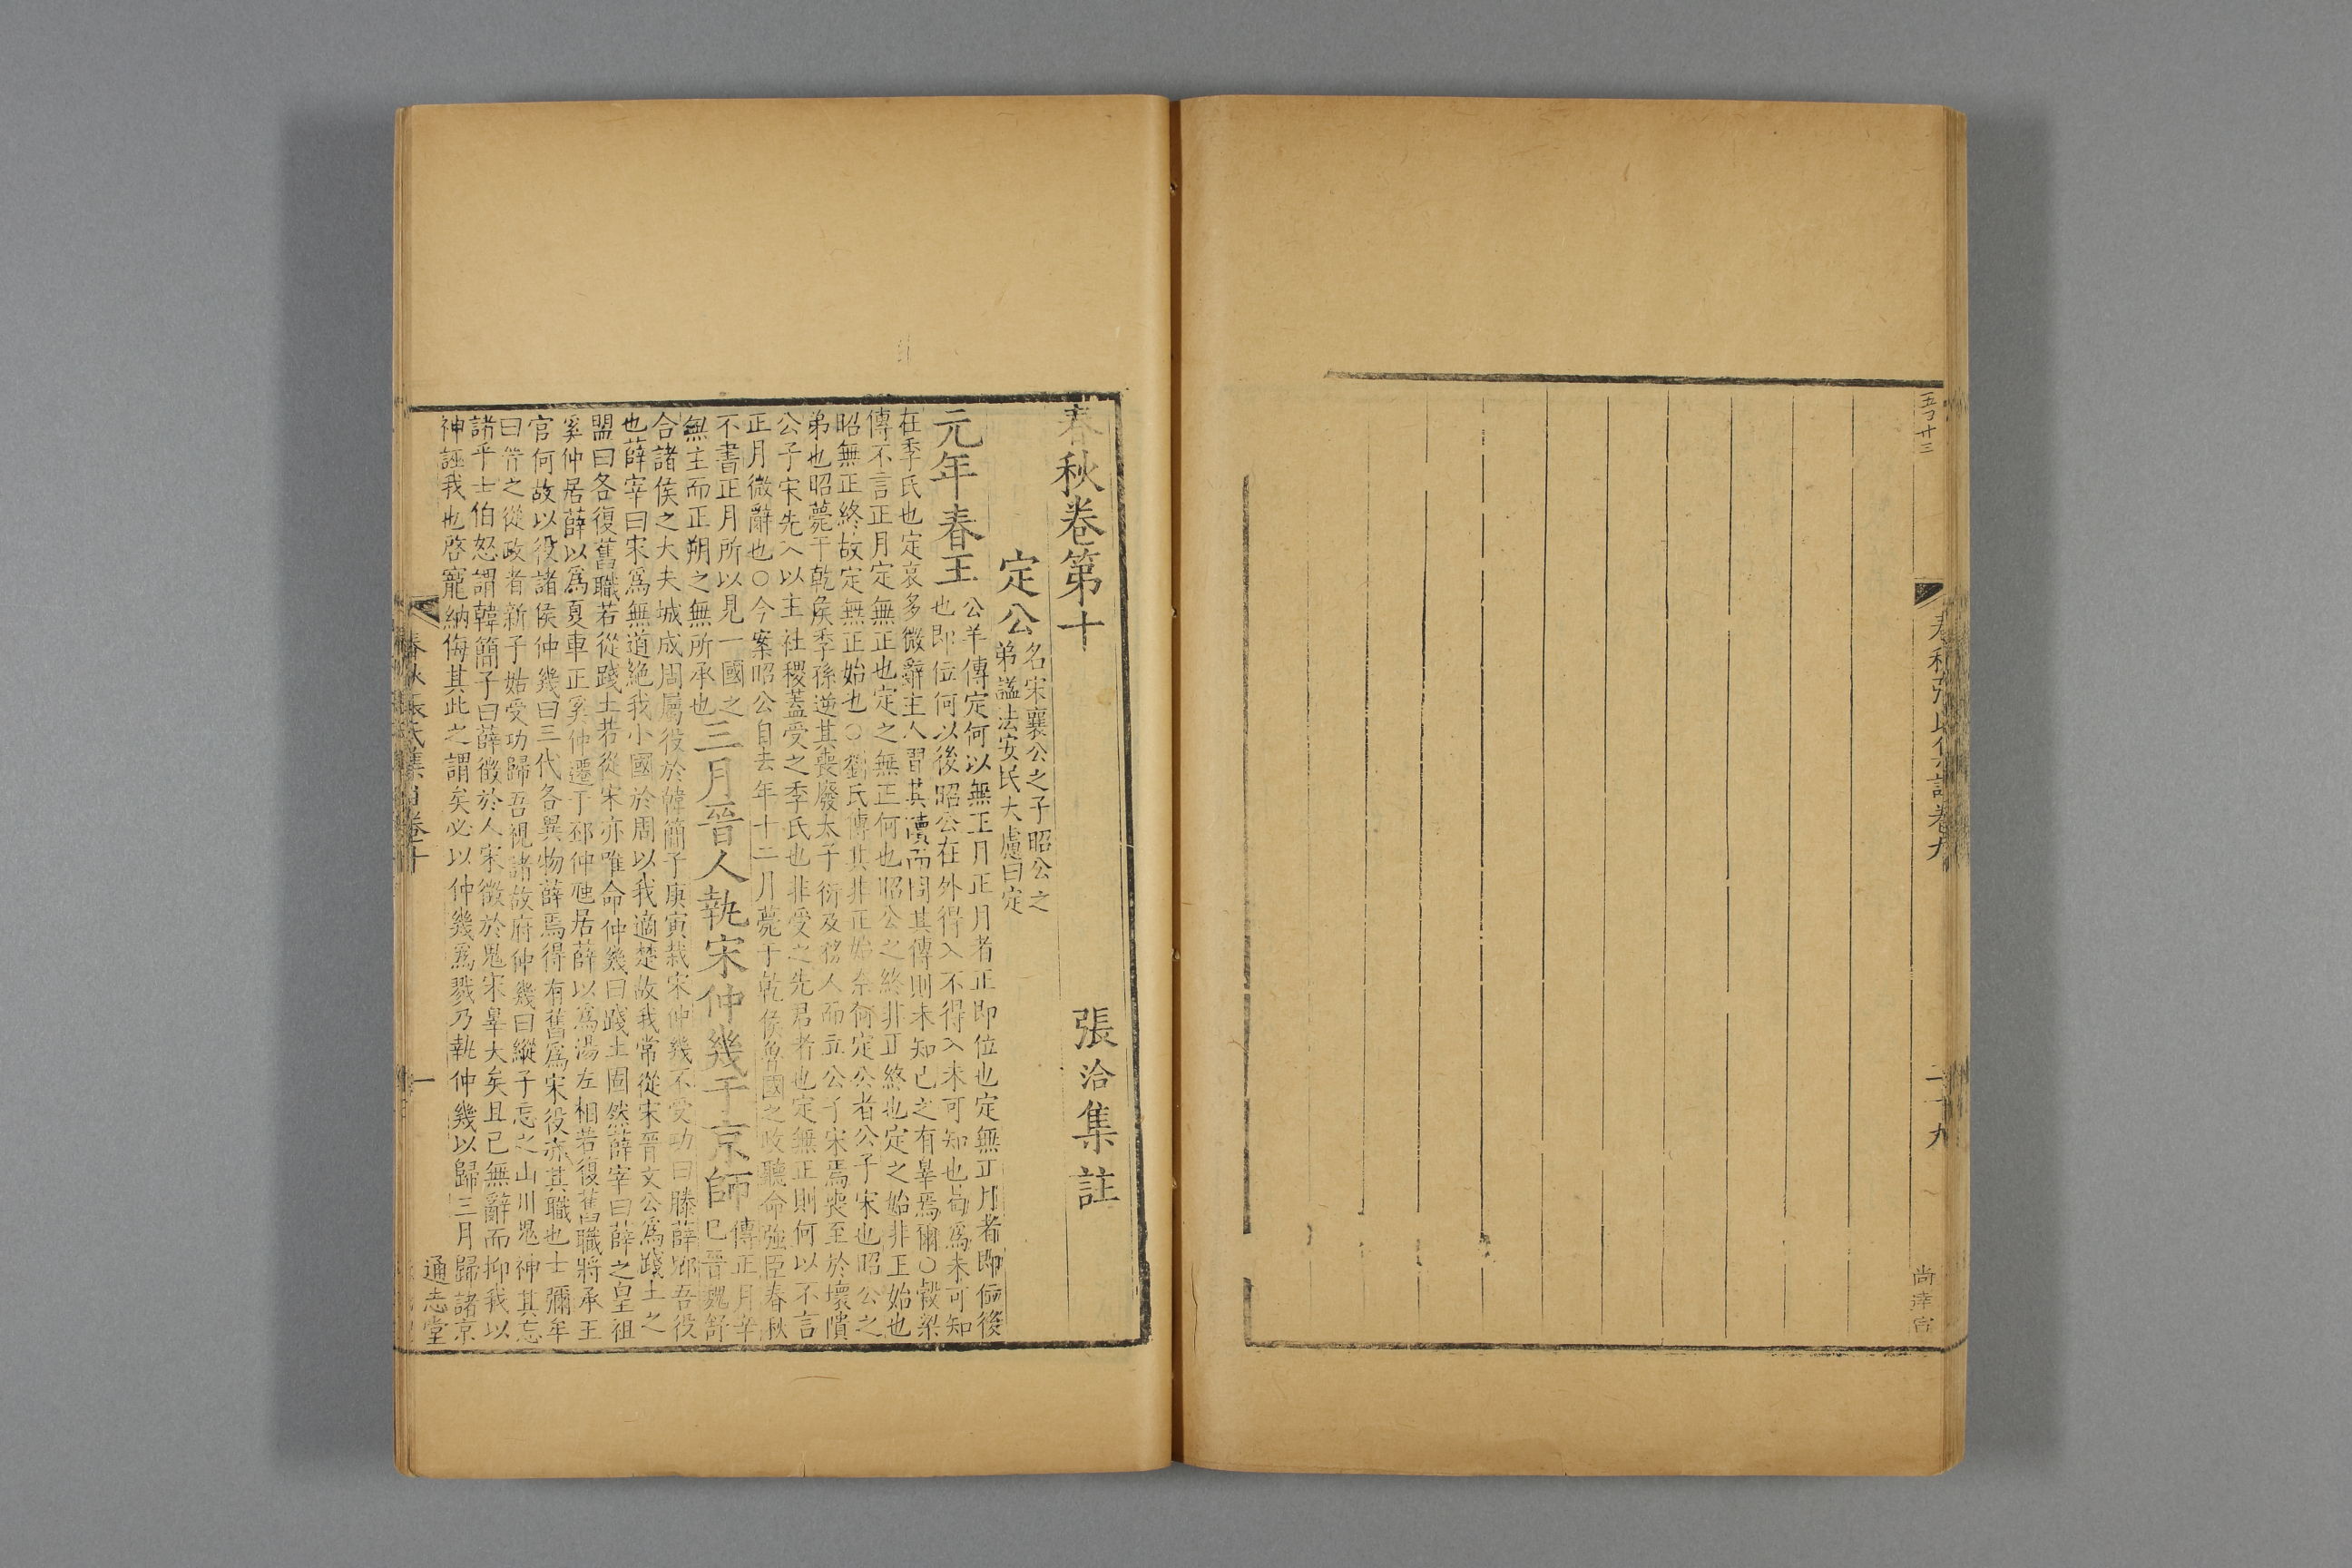 五了廿三
春秋張氏集註卷九
二十九
尚達宫
春秋卷第十
張洽集註
定公
名宋襄公之子昭公之
弟謚法安民大慮曰定
元年春王
公羊傳定何以無正月正月者正即位也定無正月者即位後
也即位何以後昭公在外得入不得入未可知也曷爲未可知
在季氏也定哀多微辭主人習其讀而問其傳則未知己之有辠焉爾○穀梁
傳不言正月定無正也定之無正何也昭公之終非正終也定之始非正始也
昭無正終故定無正始也○劉氏傳其非正始柰何定公者公子宋也昭公之
弟也昭薨于乾侯季孫逆其喪廢太子衍及務人而立公子宋焉喪至於壞隤
公子宋先入以主社稷蓋受之季氏也非受之先君者也定無正則何以不言
正月微辭也○今案昭公自去年十二月薨于乾侯魯國之政聽命強臣春秋
不書正月所以見一國之
無主而正朔之無所承也
三月晉人執宋仲幾于京師
傳正月辛
巳晉魏舒
合諸侯之大夫城成周屬役於韓簡子庚寅栽宋仲幾不受功曰滕薛郳吾役
也薛宰曰宋爲無道絶我小國於周以我適楚故我常從宋晉文公爲踐土之
盟曰各復舊職若從踐土若從宋亦唯命仲幾曰踐土固然薛宰曰薛之皇祖
奚仲居薛以爲夏車正奚仲遷于邳仲虺居薛以爲湯左相若復舊職將承王
官何故以役諸侯仲幾曰三代各異物薛焉得有舊爲宋役亦其職也士彌牟
曰晉之從政者新子姑受功歸吾視諸故府仲幾曰縱子忘之山川鬼神其忘
諸乎士伯怒謂韓簡子曰薛徵於人宋徵於鬼宋辠大矣且己無辭而抑我以
神誣我也啓寵納侮其此之謂矣必以仲幾爲戮乃執仲幾以歸三月歸諸京
春秋張氏集註卷十
一
通志堂